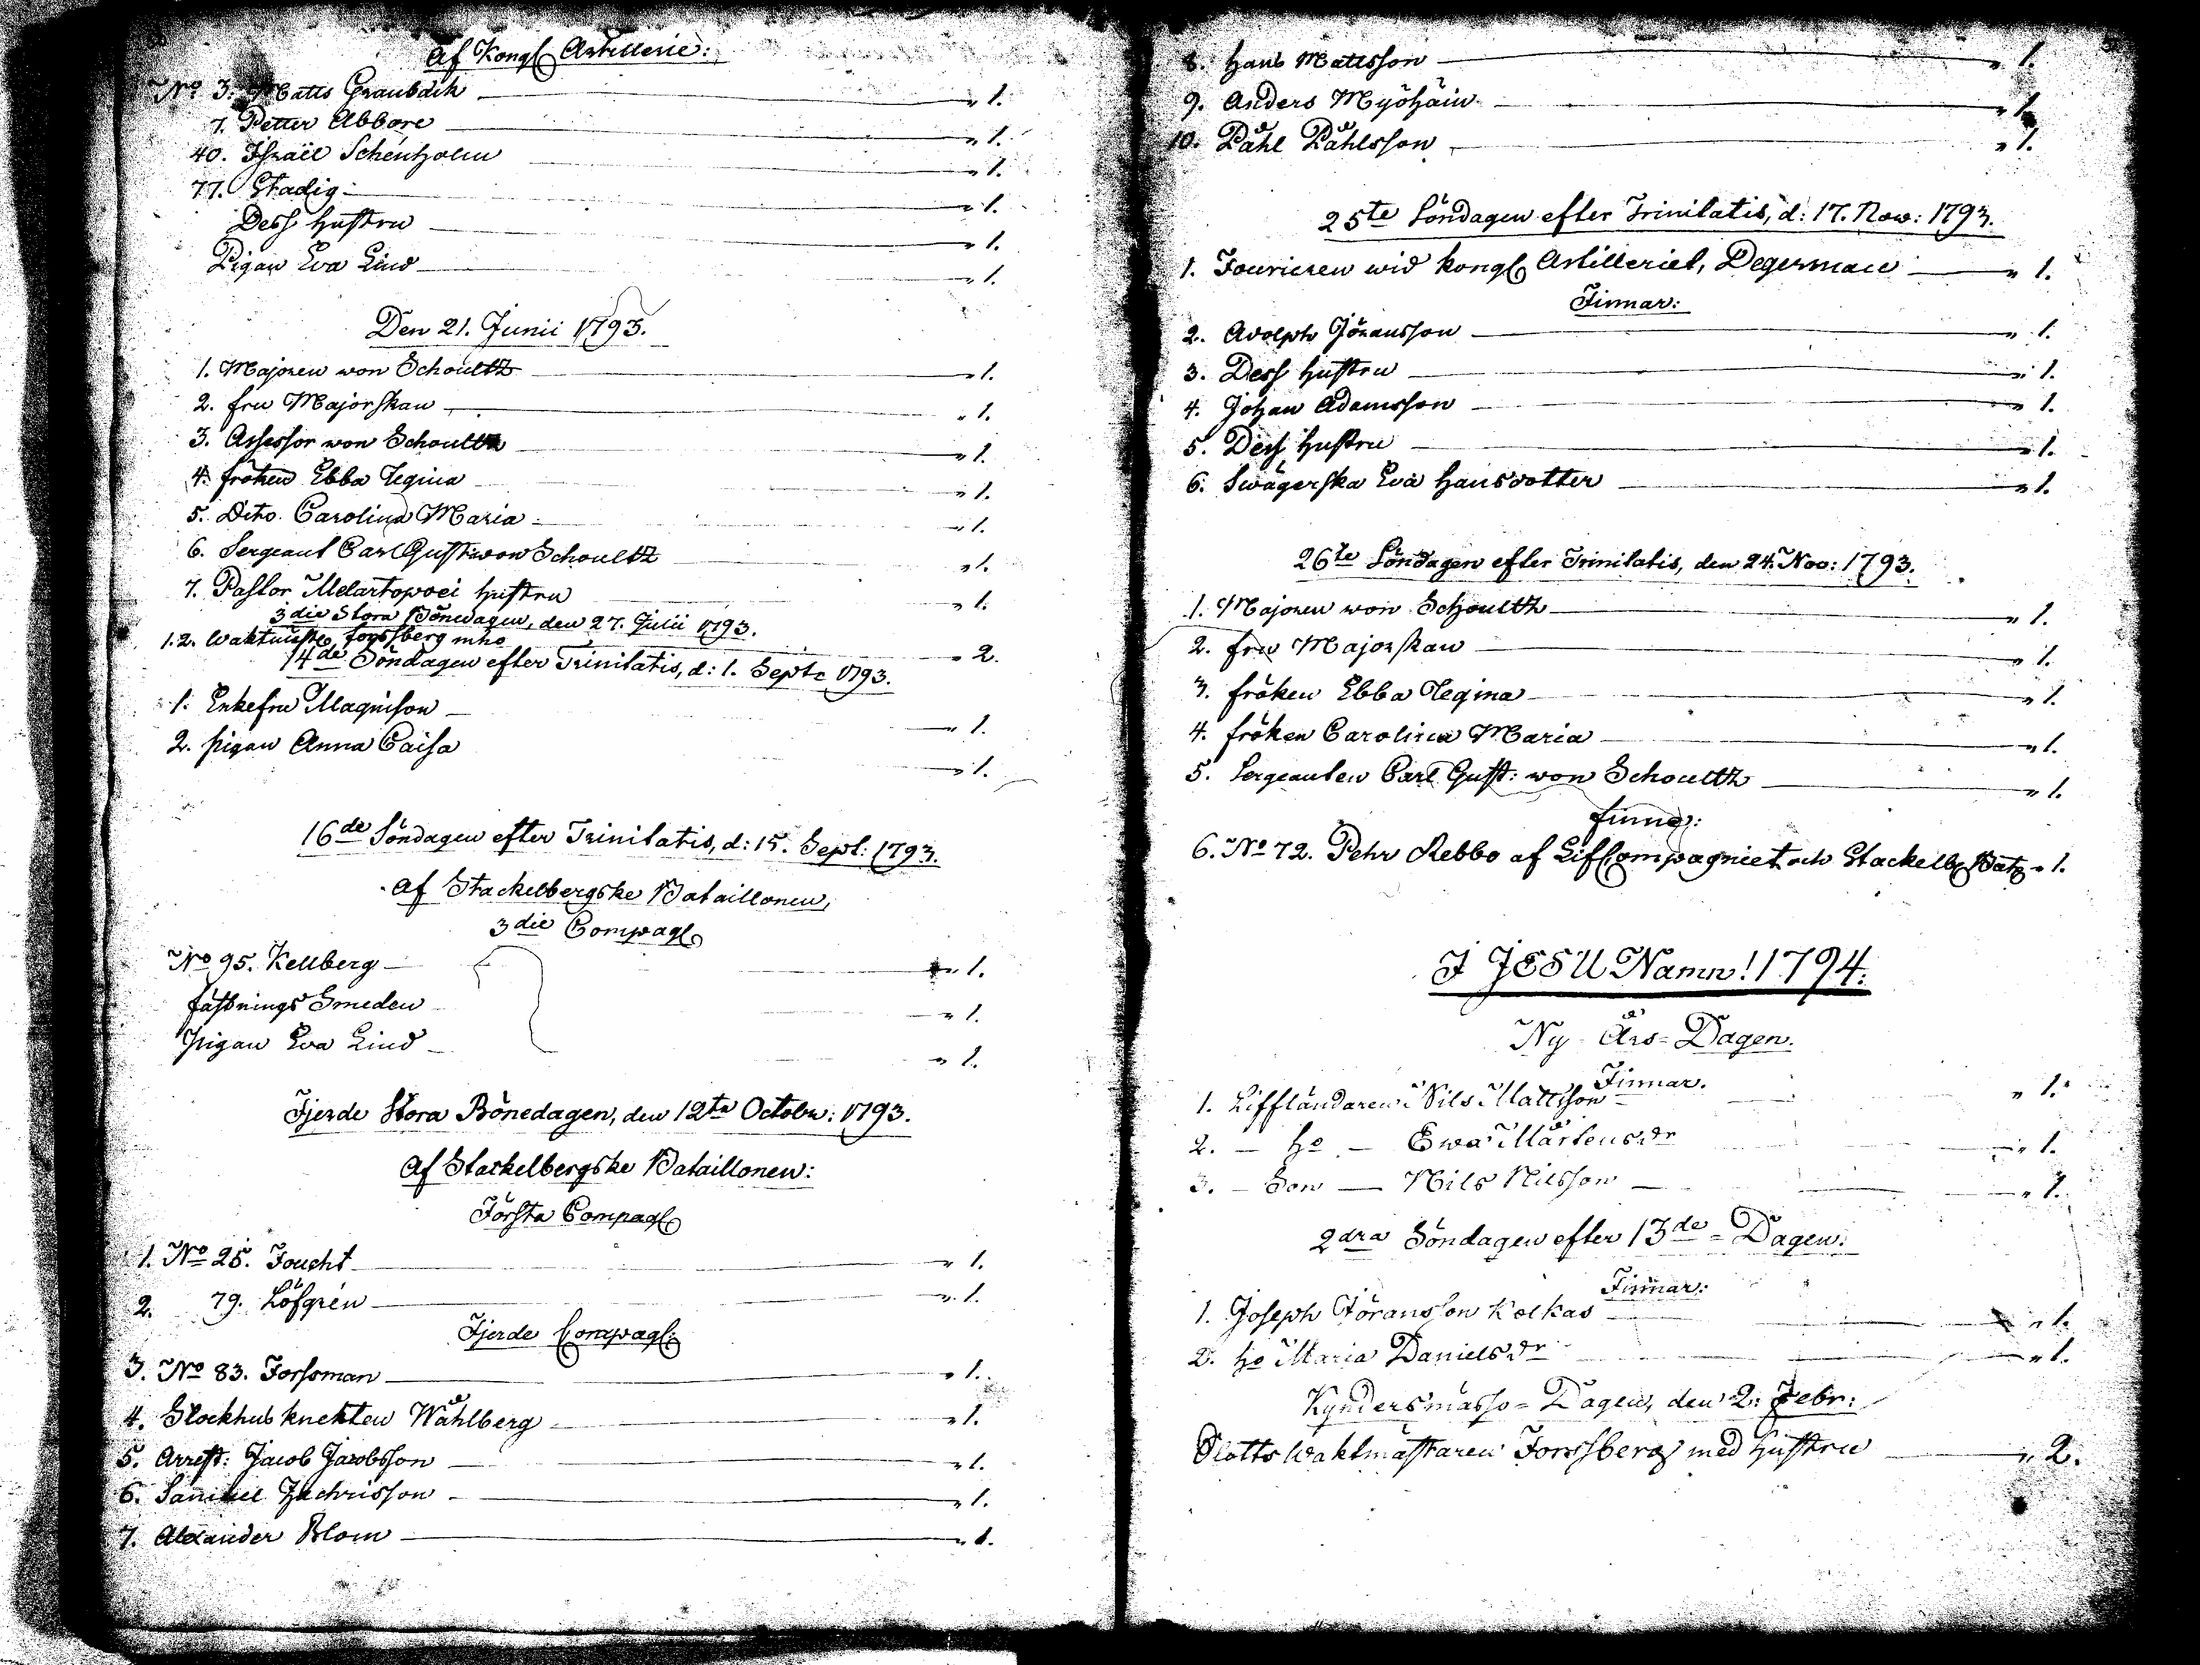 Af Kongl Artillerie:
No 3. Matts Graubach " 1.
7. Petter Abbore " 1.
40. Israël Schentholm " 1.
77. Stadig " 1.
Dess hustru " 1.
Pigan Eva Lind " 1.
Den 21. Junii 1793.
1. Majoren von Schoultz " 1.
2. fru Majorskan " 1.
3. Assessor von Schoultz " 1.
4. fröken Ebba Regina " 1.
5. Dito Carolina Maria " 1.
6. Sergeant Carl Gust: von Schoultz " 1.
7. Pastor Melartopoei hustru " 1.
3die Stora Bönedagen, den 27. Julii 1793.
1.2. Waktmist: forssberg mho " 2.
14de Söndagen efter Trinitatis, d: 1. Septr 1793.
1. Enkefru Magnison " 1.
2. pigan Anna Caisa " 1.
16de Söndagen efter Trinitatis, d: 15. Sept: 1793.
Af Stackelbergske Bataillonen,
3die Compagl
No 95. Kellberg " 1.
fästnings Smeden " 1.
pigan Eva Lind " 1.
Fjerde Stora Bönedagen, den 12te Octobr: 1793.
Af Stackelbergske Bataillonen:
Första Compagl
1. No 25. Foucht " 1.
2. 79. Löfgrén " 1.
Fjerde Compagl:
3. No 83. Forssman " 1.
4. Stockhus knekten Wåhlberg " 1.
5. Arrest: Jacob Jacobsson " 1.
6. Samuel Zachrisson " 1.
7. Alexander Blom " 1.
8. Hans Mattsson " 1.
9. Anders Myöhäin " 1.
10. Påhl Påhlsson " 1.
25te Söndagen efter Trinitatis, d: 17. Nov: 1793.
1. Fourieren wid kongl Artilleriet, Degerman " 1.
Finnar:
2. Adolph Jöransson " 1.
3. Dess hustru " 1.
4. Johan Adamsson " 1.
5. Dess hustru " 1.
6. Swägerska Eva Hansdotter " 1.
26te Söndagen efter Trinitatis, den 24. Nov: 1793.
1. Majoren von Schoultz " 1.
2. fru Majorskan " 1.
3. fröken Ebba Regina " 1.
4. fröken Carolina Maria " 1.
5. Sergeanten Carl Gust: von Schoultz " 1.
finne:
6. No 72. Pehr Rebbo af Lif Compagniet och Stackelb Bat " 1.
I JESU Namn! 1794.
Ny Års-Dagen.
Finnar.
1. Liffländaren Nils Mattsson " 1.
2. - ho - Ewa Mårtensdr " 1.
3. - Son - Nils Nilsson " 1.
2dra Söndagen efter 13de-Dagen.
Finnar:
1. Joseph Göransson Kolkas " 1.
2. ho Maria Danielsdr " 1.
Kyndersmässo-Dagen, den 2. Febr:
Slotts Waktmästaren Forssberg med hustru " 2.